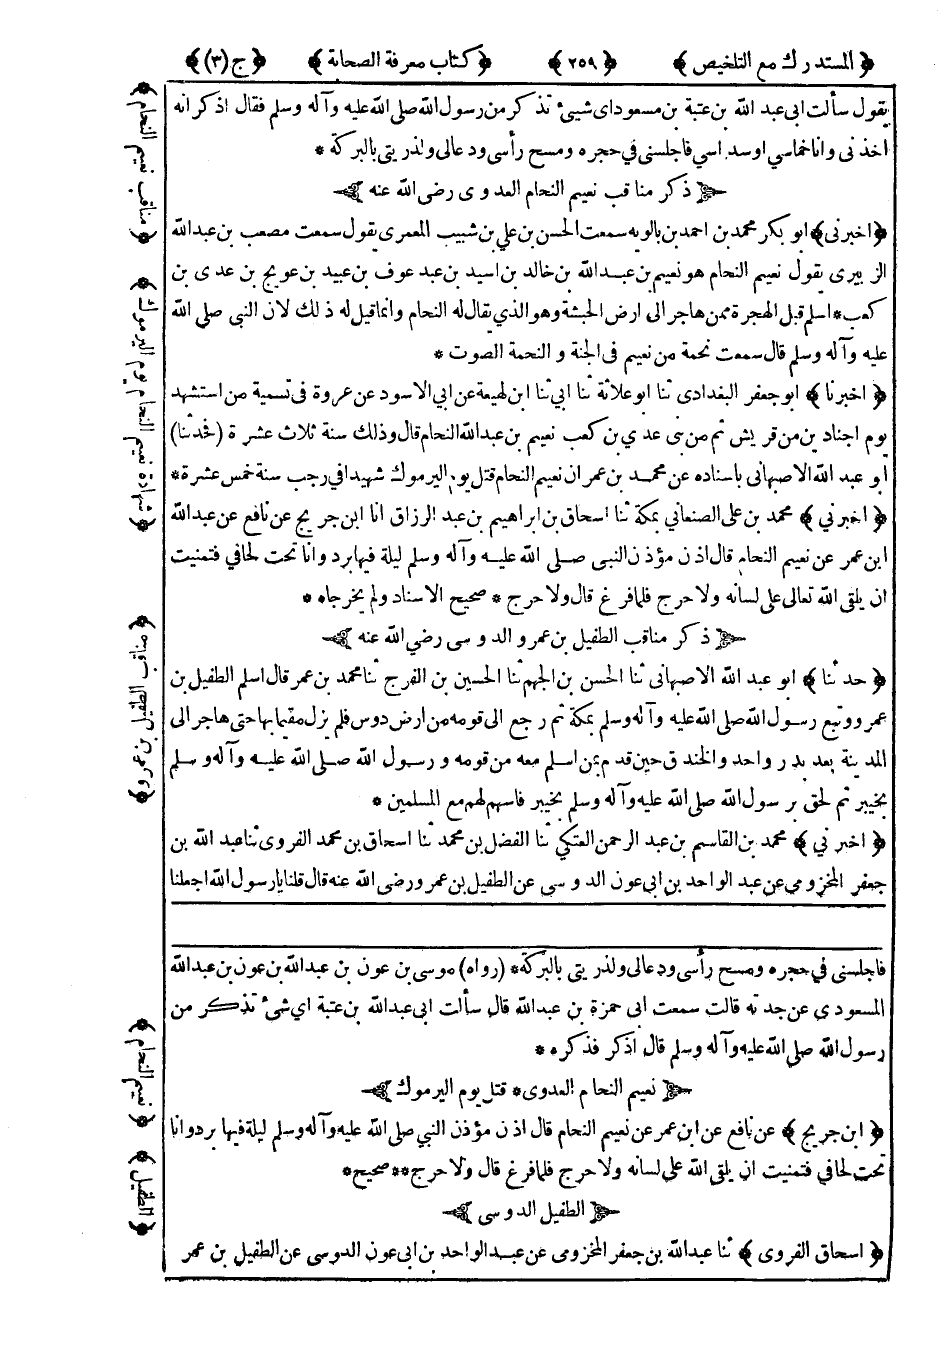 ﴿ المستدرك مع التلخيص ﴾ ﴿ ٢٥٩ ﴾ ﴿ كتاب معرفة الصحابة ﴾ ﴿ ج (٣) ﴾
يقول سألت ابى عبد الله بن عتبة بن مسعود اى شيئ تذكر من رسول الله صلى الله عليه وآله وسلم فقال اذكر انه
اخذنى وانا خماسي او سداسي فاجلسنى في حجره ومسح رأسى ودعالى ولذريتى بالبركة *
﴿ ذكر مناقب نعيم النحام العدوى رضى الله عنه ﴾
﴿ اخبرنى ﴾ ابو بكر محمد بن احمد بن بالويه سمعت الحسن بن علي بن شبيب المعمرى يقول سمعت مصعب بن عبد الله
الزبيرى يقول نعيم النحام هو نعيم بن عبد الله بن خالد بن اسيد بن عبد عوف بن عبيد بن عويج بن عدى بن
كعب * اسلم قبل الهجرة ممن هاجر الى ارض الحبشة وهو الذي يقال له النحام وانما قيل له ذلك لان النبى صلى الله
عليه وآله وسلم قال سمعت نحمة من نعيم فى الجنة و النحمة الصوت *
﴿ اخبرنا ﴾ ابو جعفر البغدادى ثنا ابو علاثة ثنا ابي ثنا ابن لهيعة عن ابي الاسود عن عروة فى تسمية من استشهد
يوم اجنادين من قريش ثم من بنى عدي بن كعب نعيم بن عبد الله النحام قال وذلك سنة ثلاث عشرة (فحدثنا)
ابو عبد الله الاصبهانى باسناده عن محمد بن عمر ان نعيم النحام قتل يوم اليرموك شهيدا في رجب سنة خمس عشرة *
﴿ اخبرني ﴾ محمد بن على الصنعاني بمكة ثنا اسحاق بن ابراهيم بن عبد الرزاق انا ابن جريج عن نافع عن عبد الله
ابن عمر عن نعيم النحام قال اذن مؤذن النبى صلى الله عليه وآله وسلم ليلة فيها برد وانا تحت لحافي فتمنيت
ان يلقى الله تعالى على لسانه ولا حرج فلما فرغ قال ولا حرج * صحيح الاسناد ولم يخرجاه *
﴿ ذكر مناقب الطفيل بن عمرو الدوسى رضي الله عنه ﴾
﴿ حدثنا ﴾ ابو عبد الله الاصبهانى ثنا الحسن بن الجهم ثنا الحسين بن الفرج ثنا محمد بن عمر قال اسلم الطفيل بن
عمرو وتبع رسول الله صلى الله عليه وآله وسلم بمكة ثم رجع الى قومه من ارض دوس فلم يزل مقيما بها حتى هاجر الى
المدينة بعد بدر واحد والخندق حين قدم بمن اسلم معه من قومه ورسول الله صلى الله عليه وآله وسلم
بخيبر ثم لحق برسول الله صلى الله عليه وآله وسلم بخيبر فاسهم لهم مع المسلمين *
﴿ اخبرني ﴾ محمد بن القاسم بن عبد الرحمن العتكي ثنا الفضل بن محمد ثنا اسحاق بن محمد الفروى ثنا عبد الله بن
جعفر المخزومي عن عبد الواحد بن ابى عون الدوسى عن الطفيل بن عمرو رضى الله عنه قال قلنا يا رسول الله اجعلنا
فاجلسنى في حجره ومسح رأسى ودعالى ولذريتى بالبركة * (رواه) موسى بن عون بن عبد الله بن عون بن عبد الله
المسعودى عن جدته قالت سمعت ابى حمزة بن عبد الله قال سألت ابى عبد الله بن عتبة اى شئ تذكر من
رسول الله صلى الله عليه وآله وسلم قال اذكر فذكره *
﴿ نعيم النحام العدوى * قتل يوم اليرموك ﴾
﴿ ابن جريج ﴾ عن نافع عن ابن عمر عن نعيم النحام قال اذن مؤذن النبي صلى الله عليه وآله وسلم ليلة فيها برد وانا
تحت لحافي فتمنيت ان يلقى الله على لسانه ولا حرج فلما فرغ قال ولا حرج ** صحيح *
﴿ الطفيل الدوسى ﴾
﴿ اسحاق الفروى ﴾ ثنا عبد الله بن جعفر المخزومى عن عبد الواحد بن ابى عون الدوسى عن الطفيل بن عمر
﴿ مناقب نعيم النحام ﴾
﴿ شهادة نعيم النحام يوم اليرموك ﴾
﴿ مناقب الطفيل بن عمرو ﴾
﴿ نعيم النحام ﴾
﴿ الطفيل ﴾